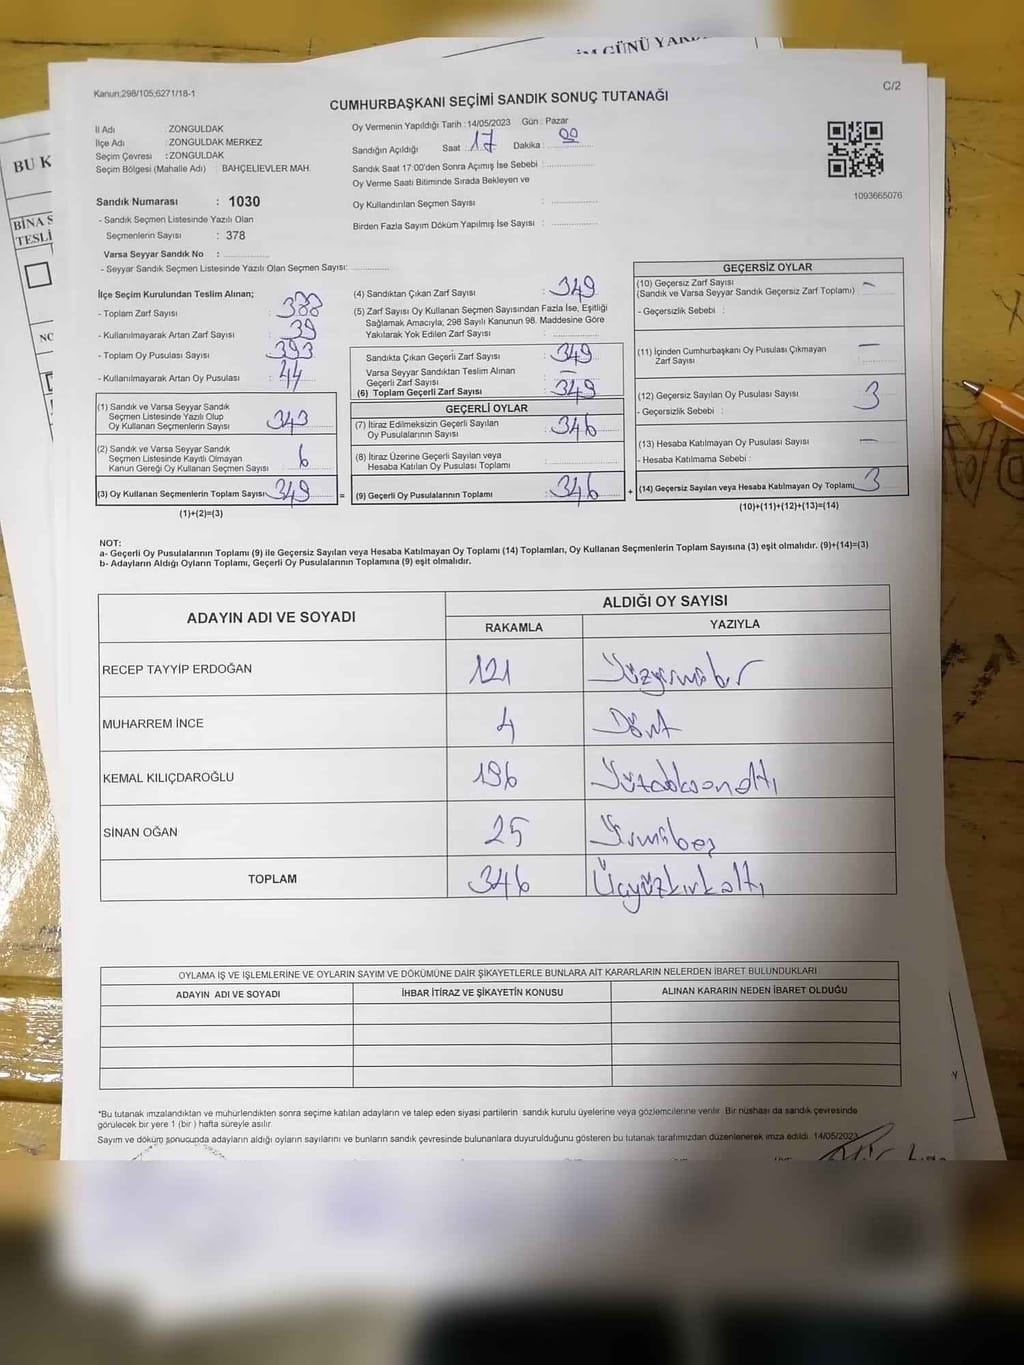 İM GÜNÜ YARD
BU K
BİNA S
TESLİ
NO
Kanun;298/105;6271/18-1
C/2
CUMHURBAŞKANI SEÇİMİ SANDIK SONUÇ TUTANAĞI
İl Adı : ZONGULDAK
İlçe Adı : ZONGULDAK MERKEZ
Seçim Çevresi : ZONGULDAK
Seçim Bölgesi (Mahalle Adı) : BAHÇELİEVLER MAH.
Sandık Numarası : 1030
- Sandık Seçmen Listesinde Yazılı Olan
Seçmenlerin Sayısı : 378
Varsa Seyyar Sandık No : ............
- Seyyar Sandık Seçmen Listesinde Yazılı Olan Seçmen Sayısı: ............
Oy Vermenin Yapıldığı Tarih : 14/05/2023 Gün : Pazar
Sandığın Açıldığı Saat : 17 Dakika : 00
Sandık Saat 17:00'den Sonra Açımış İse Sebebi : ............
Oy Verme Saati Bitiminde Sırada Bekleyen ve
Oy Kullandırılan Seçmen Sayısı : ............
Birden Fazla Sayım Döküm Yapılmış İse Sayısı : ............
1093665076
İlçe Seçim Kurulundan Teslim Alınan;
- Toplam Zarf Sayısı : 388
- Kullanılmayarak Artan Zarf Sayısı : 39
- Toplam Oy Pusulası Sayısı : 393
- Kullanılmayarak Artan Oy Pusulası : 44
(1) Sandık ve Varsa Seyyar Sandık
Seçmen Listesinde Yazılı Olup
Oy Kullanan Seçmenlerin Sayısı : 343
(2) Sandık ve Varsa Seyyar Sandık
Seçmen Listesinde Kayıtlı Olmayan
Kanun Gereği Oy Kullanan Seçmen Sayısı : 6
(3) Oy Kullanan Seçmenlerin Toplam Sayısı : 349 =
(1)+(2)=(3)
(4) Sandıktan Çıkan Zarf Sayısı : 349
(5) Zarf Sayısı Oy Kullanan Seçmen Sayısından Fazla İse, Eşitliği
Sağlamak Amacıyla; 298 Sayılı Kanunun 98. Maddesine Göre
Yakılarak Yok Edilen Zarf Sayısı : ............
Sandıkta Çıkan Geçerli Zarf Sayısı : 349
Varsa Seyyar Sandıktan Teslim Alınan
Geçerli Zarf Sayısı : –
(6) Toplam Geçerli Zarf Sayısı : 349
GEÇERLİ OYLAR
(7) İtiraz Edilmeksizin Geçerli Sayılan
Oy Pusulalarının Sayısı : 346
(8) İtiraz Üzerine Geçerli Sayılan veya
Hesaba Katılan Oy Pusulası Toplamı : ............
(9) Geçerli Oy Pusulalarının Toplamı : 346 +
GEÇERSİZ OYLAR
(10) Geçersiz Zarf Sayısı : –
(Sandık ve Varsa Seyyar Sandık Geçersiz Zarf Toplamı)
- Geçersizlik Sebebi :
(11) İçinden Cumhurbaşkanı Oy Pusulası Çıkmayan : –
Zarf Sayısı
(12) Geçersiz Sayılan Oy Pusulası Sayısı : 3
- Geçersizlik Sebebi :
(13) Hesaba Katılmayan Oy Pusulası Sayısı : –
- Hesaba Katılmama Sebebi :
(14) Geçersiz Sayılan veya Hesaba Katılmayan Oy Toplamı : 3
(10)+(11)+(12)+(13)=(14)
NOT:
a- Geçerli Oy Pusulalarının Toplamı (9) ile Geçersiz Sayılan veya Hesaba Katılmayan Oy Toplamı (14) Toplamları, Oy Kullanan Seçmenlerin Toplam Sayısına (3) eşit olmalıdır. (9)+(14)=(3)
b- Adayların Aldığı Oyların Toplamı, Geçerli Oy Pusulalarının Toplamına (9) eşit olmalıdır.
ADAYIN ADI VE SOYADI ALDIĞI OY SAYISI
RAKAMLA YAZIYLA
RECEP TAYYİP ERDOĞAN 121 Yüzyirmibir
MUHARREM İNCE 4 Dört
KEMAL KILIÇDAROĞLU 196 Yüzdoksanaltı
SİNAN OĞAN 25 Yirmibeş
TOPLAM 346 Üçyüzkırkaltı
OYLAMA İŞ VE İŞLEMLERİNE VE OYLARIN SAYIM VE DÖKÜMÜNE DAİR ŞİKAYETLERLE BUNLARA AİT KARARLARIN NELERDEN İBARET BULUNDUKLARI
ADAYIN ADI VE SOYADI İHBAR İTİRAZ VE ŞİKAYETİN KONUSU ALINAN KARARIN NEDEN İBARET OLDUĞU
*Bu tutanak imzalandıktan ve mühürlendikten sonra seçime katılan adayların ve talep eden siyasi partilerin sandık kurulu üyelerine veya gözlemcilerine verilir. Bir nüshası da sandık çevresinde
görülecek bir yere 1 (bir) hafta süreyle asılır.
Sayım ve döküm sonucunda adayların aldığı oyların sayılarını ve bunların sandık çevresinde bulunanlara duyurulduğunu gösteren bu tutanak tarafımızdan düzenlenerek imza edildi. 14/05/2023